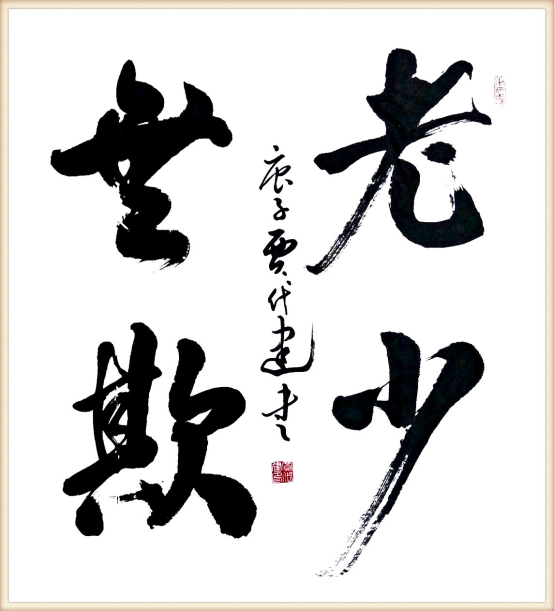 老少
無欺
庚子賈代建書